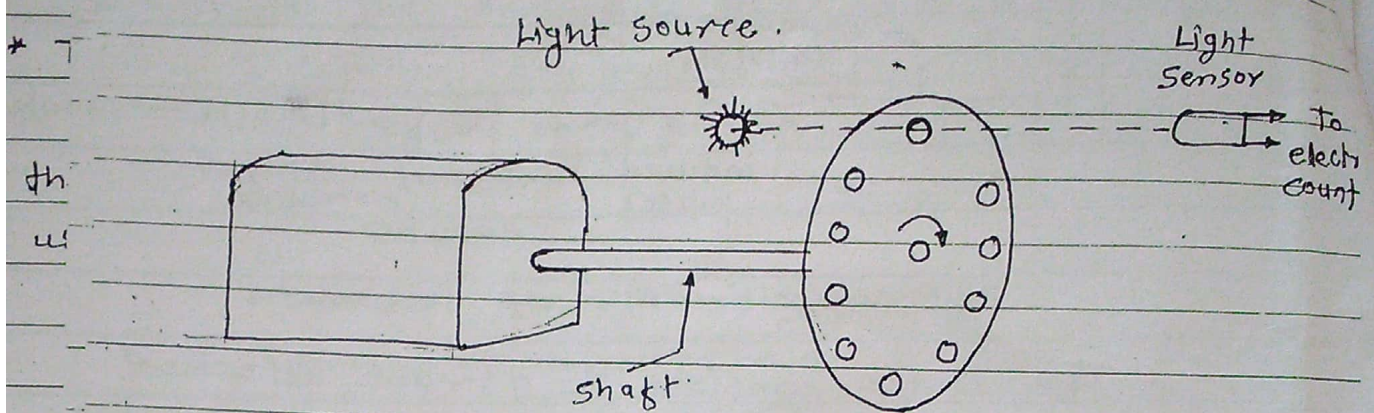 Light Source.
Light
Sensor
To
electr
count
th
shaft.